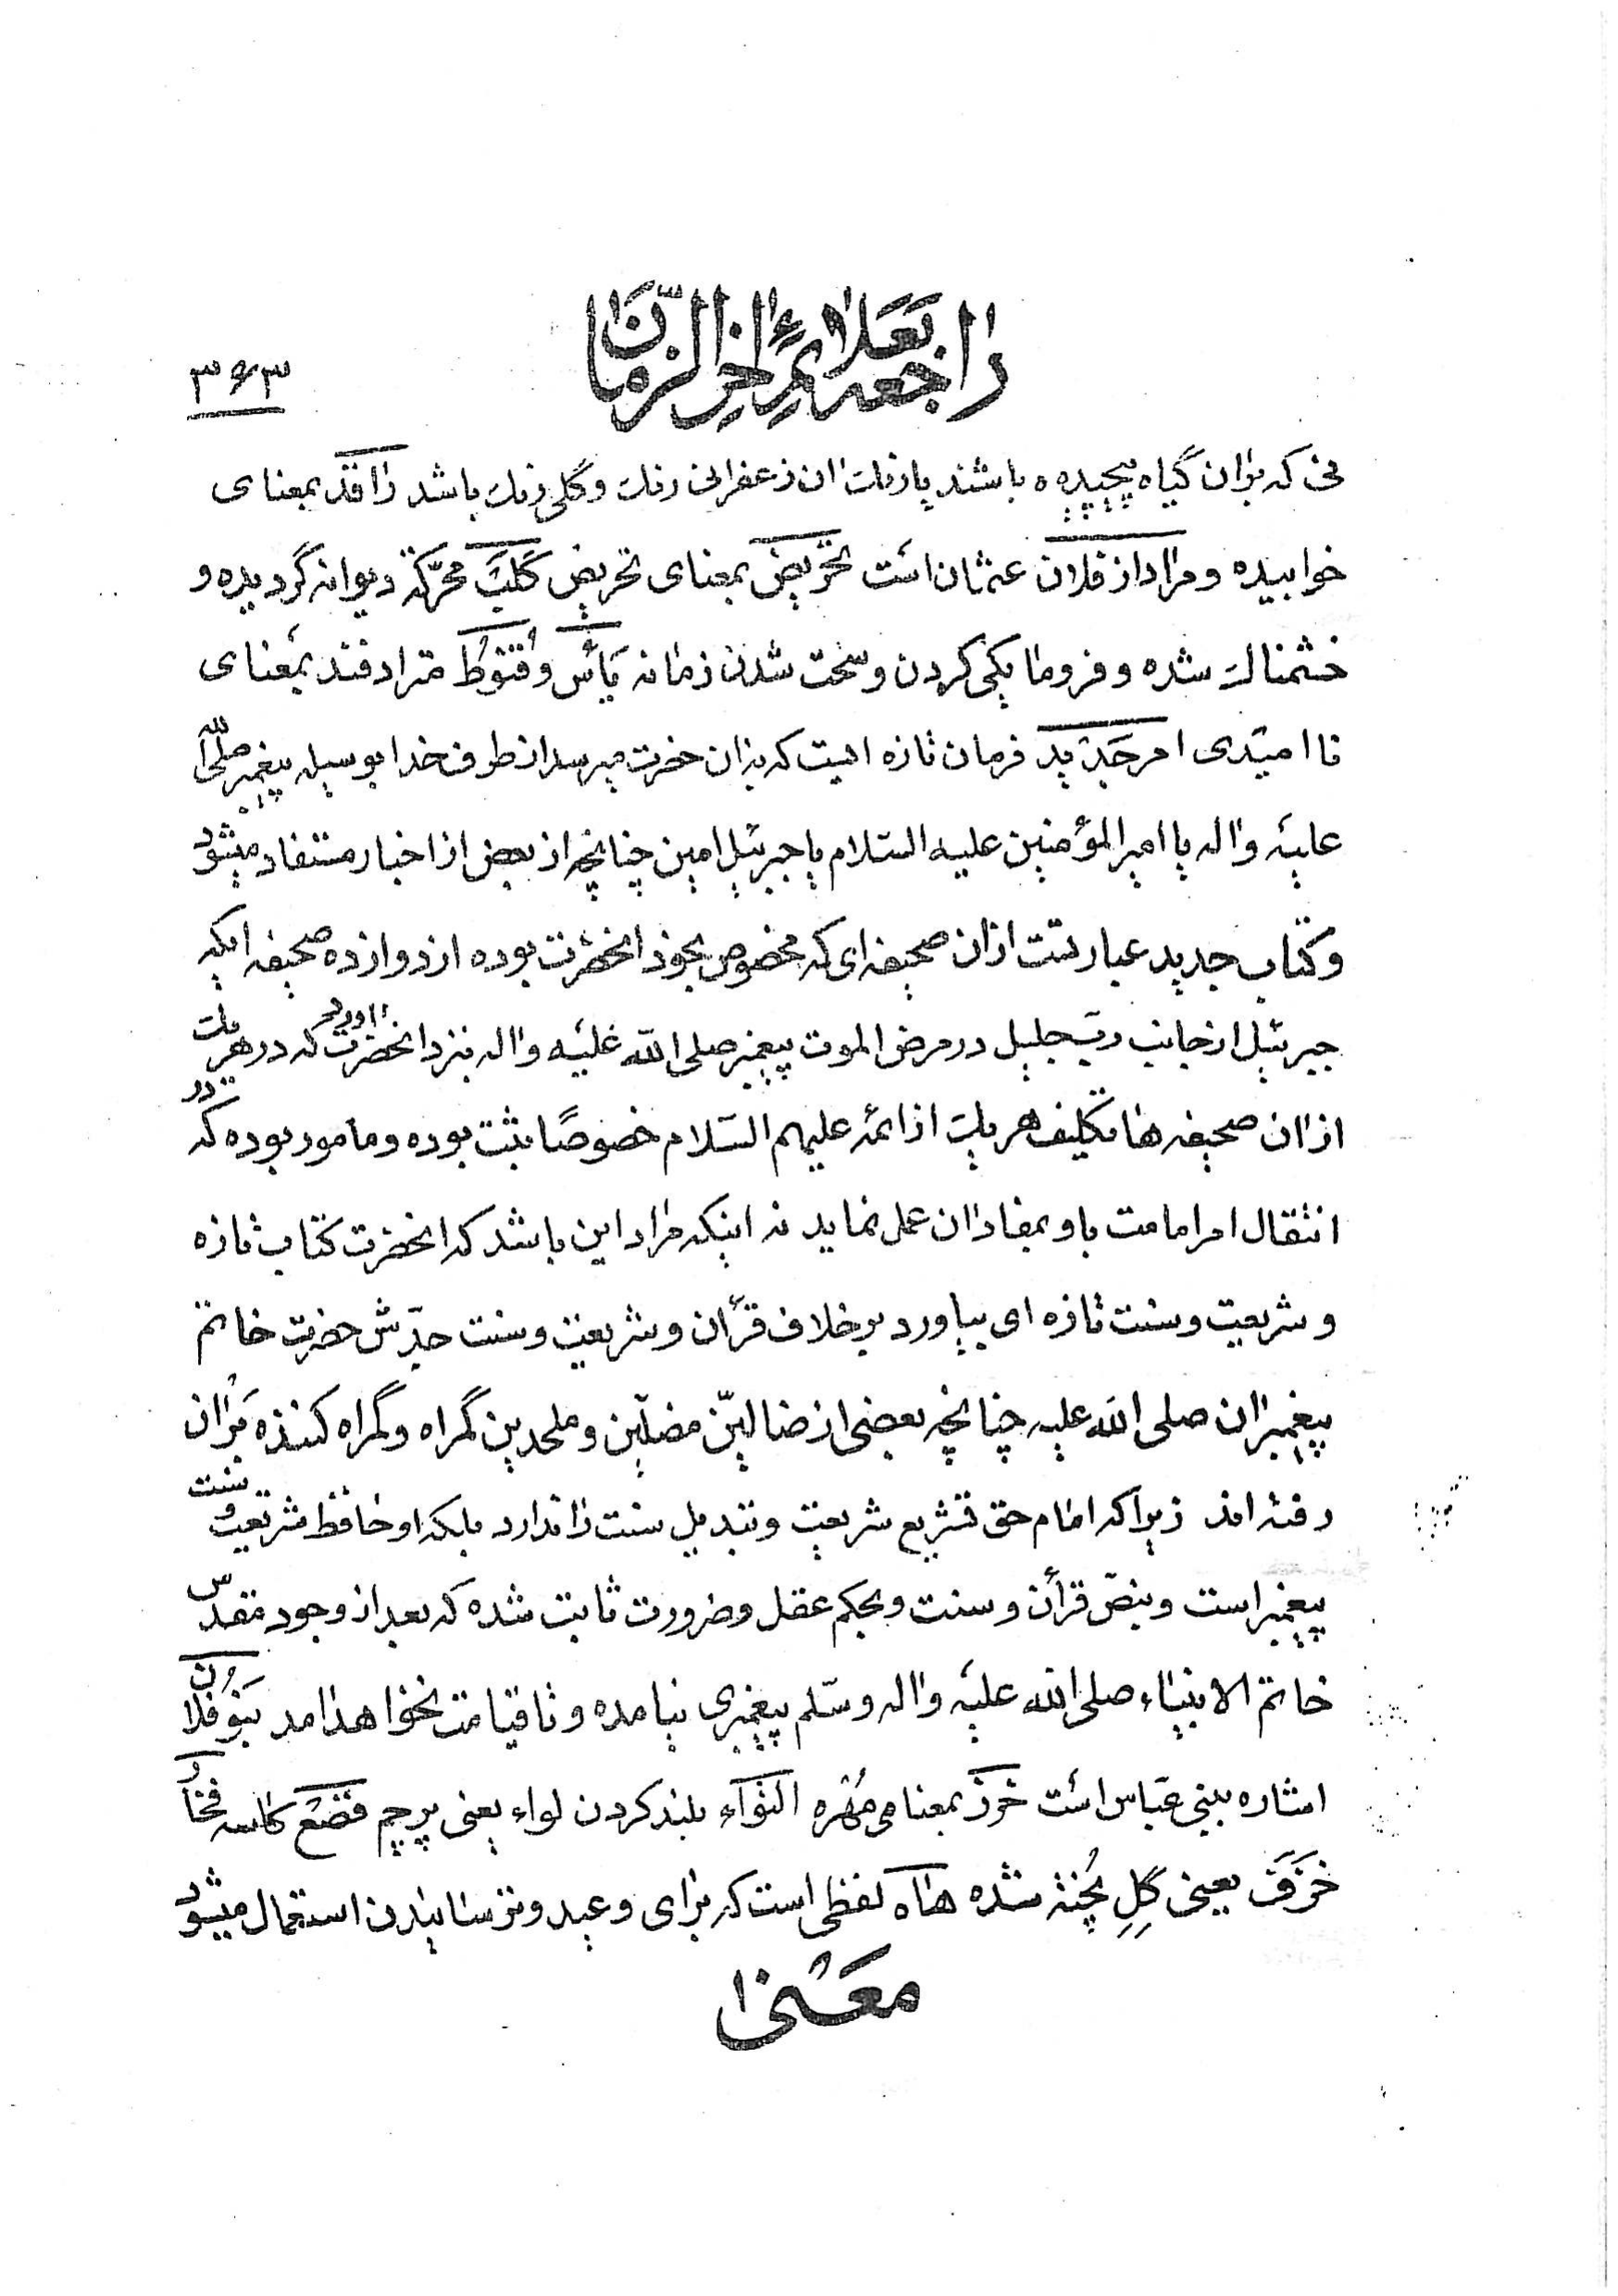 راجعه بعلائم اخر الزمان
۳۶۳
نی که بران گیاه پیچیده باشند یا رنك ان زعفرانی رنك و گلی رنك باشد راقد بمعنای
خوابیده و مراد از فلان عثمان است تحریض بمعنای تحریص كَلَبَ محرّکة دیوانه گردیده و
خشمناك شده و فرومایگی کردن و سخت شدن زمانه یَأس و قُنوُط مترادفند بمعنای
نا امیّدی امر جَدید فرمان تازه ایست که بران حضرت میرسد از طرف خدا بوسیله پیغمبر صلّی الله
علیه واله یا امیرالمؤمنین علیه السّلام یا جبرئیل امین چنانچه از بعض از اخبار مستفاد میشود
و کتاب جدید عبارتست ازان صحیفه ای که مخصوص بخود انحضرت بوده از دوازده صحیفه ایکه
جبرئیل از جانب ربّ جلیل در مرض الموت پیغمبر صلی الله علیه واله بنزد انحضرت اورد که در هر یك
از ان صحیفه ها تکلیف هر یك از ائمّه علیهم السّلام خصوصًا ثبت بوده و مامور بوده که در
انتقال امر امامت باو بمفاد ان عمل نماید نه اینکه مراد این باشد که انحضرت کتاب تازه
و شریعت و سنت تازه ای بیاورد برخلاف قرآن و شریعت و سنت جدّش حضرت خاتم
پیغمبران صلی الله علیه چنانچه بعضی از ضالیّن مضلّین و ملحدین گمراه و گمراه کننده بران
رفته اند زیرا که امام حق تشریع شریعت و تبدیل سنت را ندارد بلکه او حافظ شریعت و سنت
پیغمبر است و بنصّ قرآن و سنت و بحکم عقل و ضرورت ثابت شده که بعد از وجود مقدّس
خاتم الانبیاء صلی الله علیه واله وسّلم پیغمبری نیامده و تا قیامت نخواهد امد بَنوُ فُلان
اشاره ببنی عبّاس است خَرَز بمعنای مُهره اَلنوَآء بلند کردن لواء یعنی پرچم قصَعَ کاسه فخّار
خَزَف یعنی گِلِ پُخته شده هاه لفظی است که برای وعید و ترسانیدن استعمال میشود
معنی